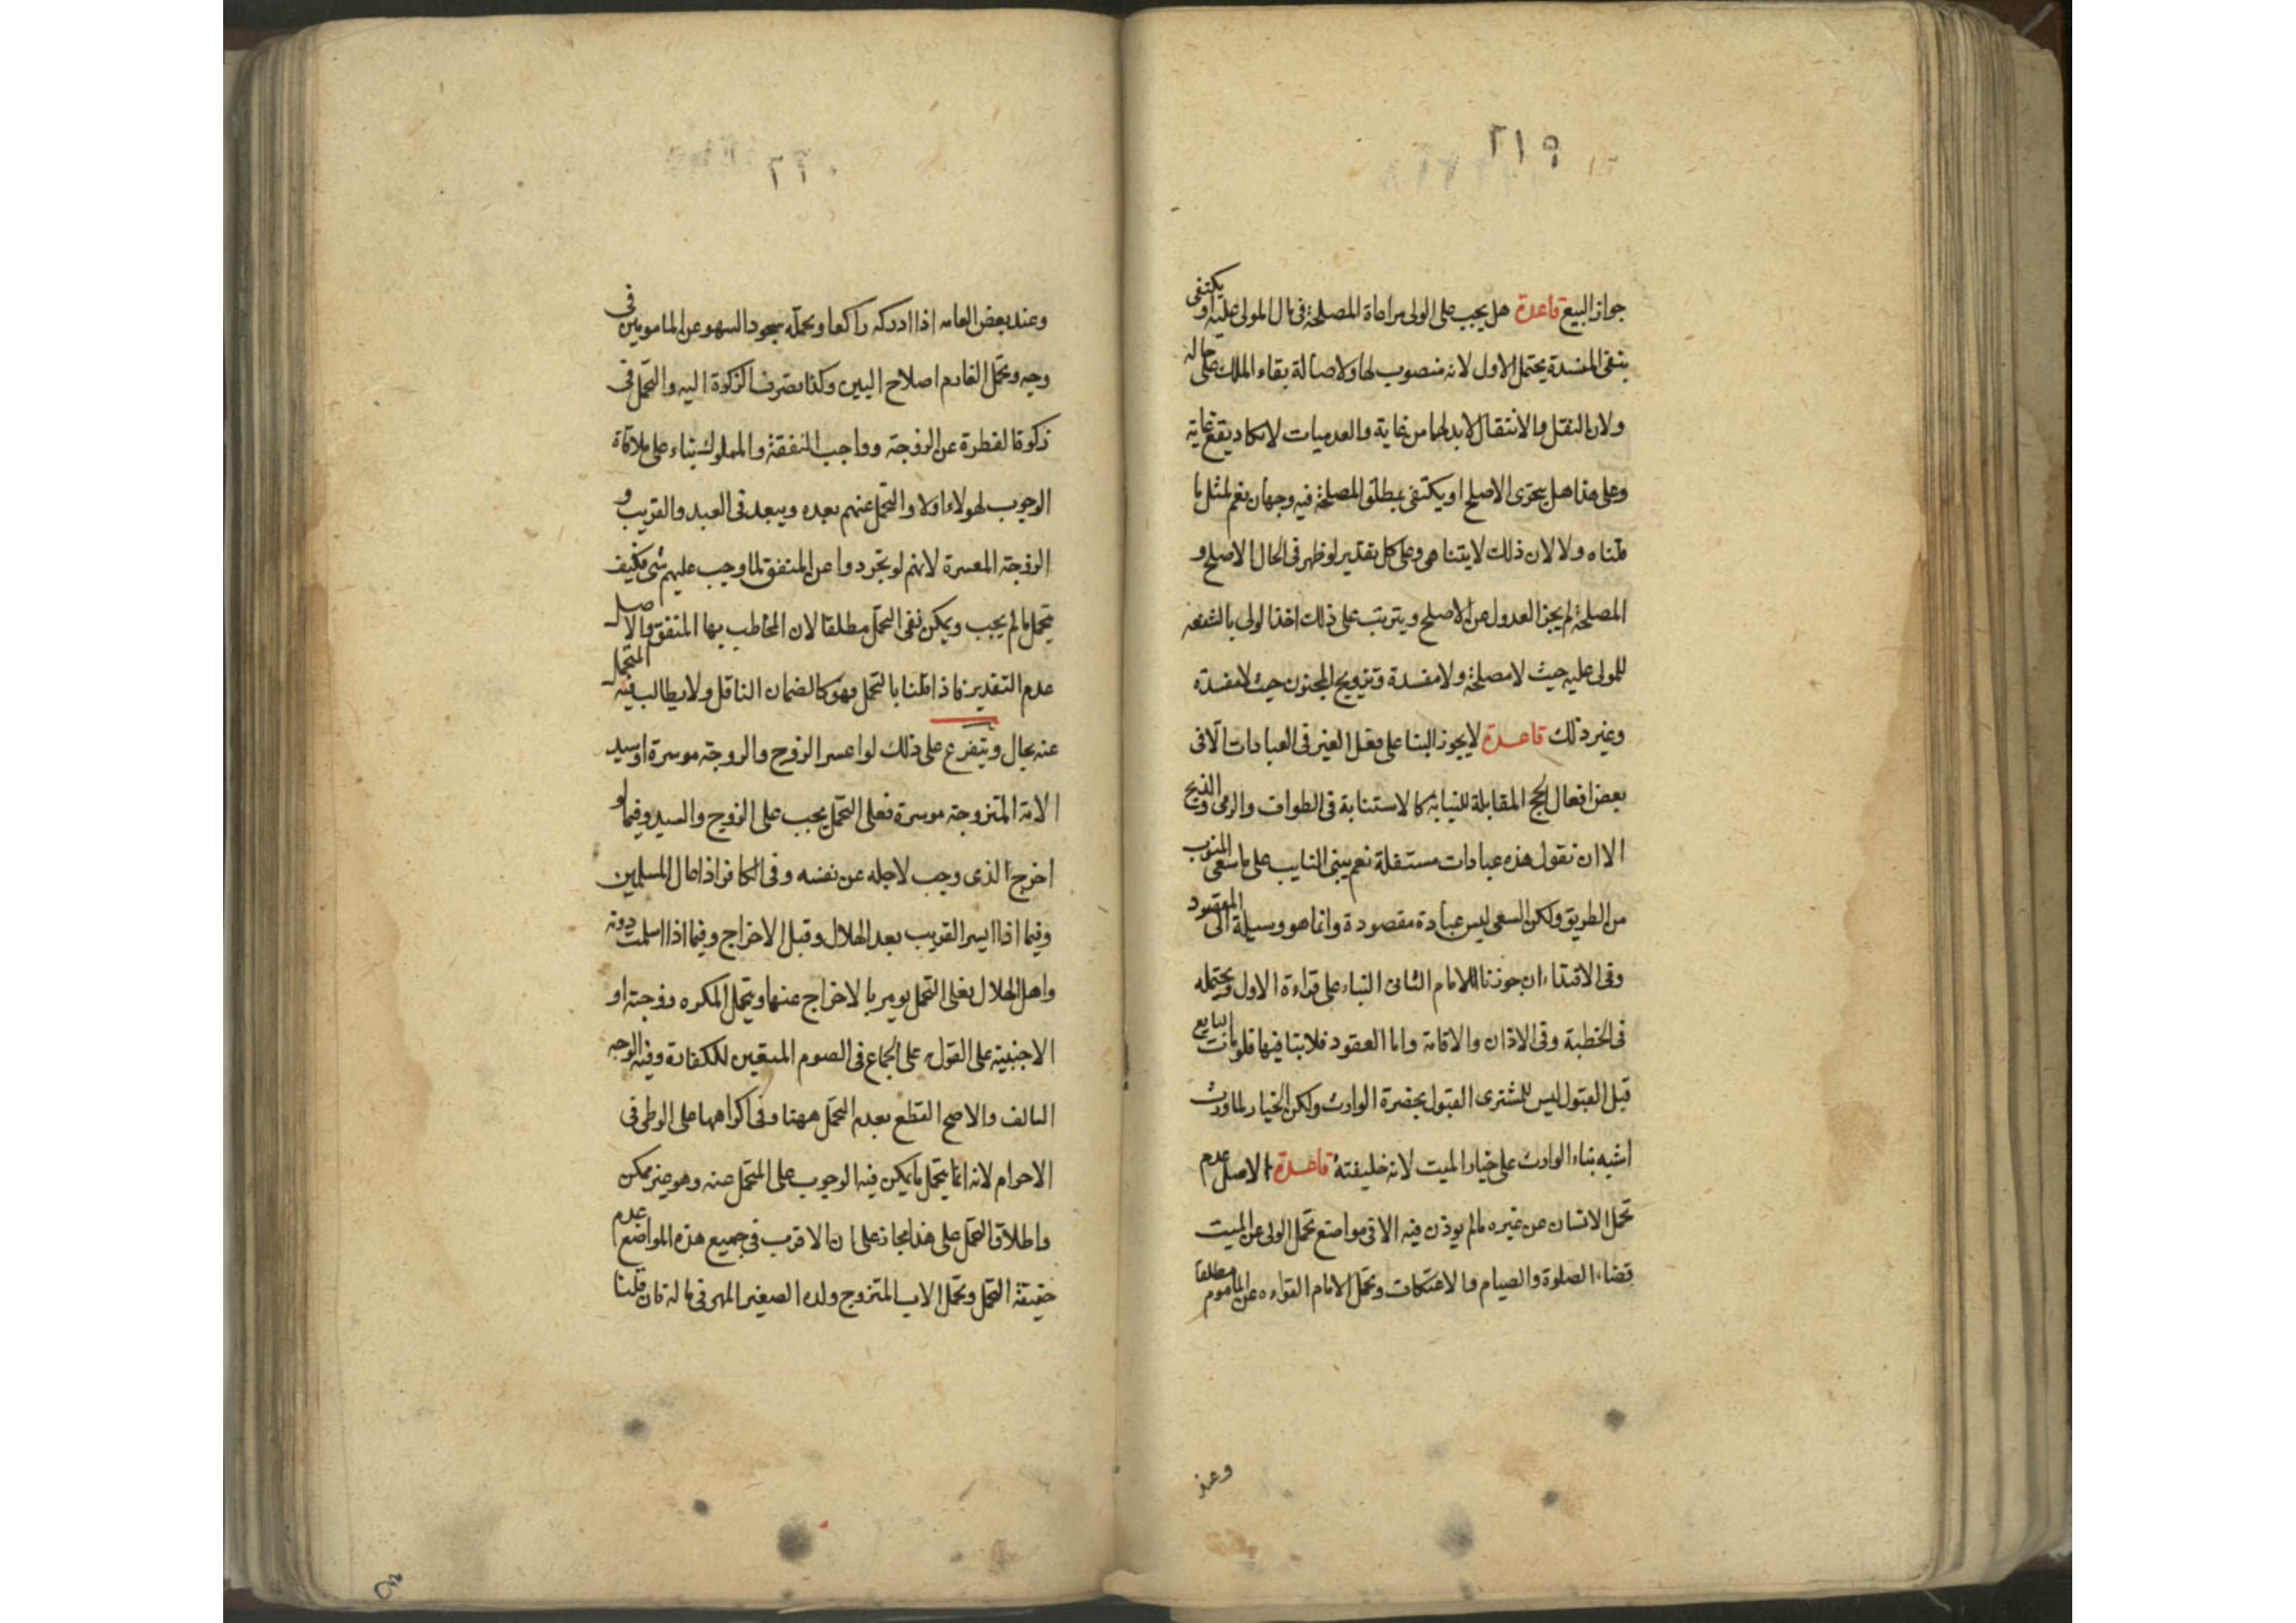 ٢١٩
جواز البيع قاعدة هل يجب على الولى مراعاة المصلحة فى مال المولى عليه او يكتفى
بنفى المفسدة يحتمل الاول لانه منصوب لها ولاصالة بقاء الملك على حاله
ولان النقل والانتقال لابد لهما من غاية والعدميات لا تكاد يقع غاية
وعلى هذا هل يتحرى الاصلح او يكتفى بمطلق المصلحة فيه وجهان نعم لمثل ما
قلناه ولا لان ذلك لا يتناهى وعلى كل تقدير لو ظهر فى الحال الاصلح و
المصلحة لم يجز العدول عن الاصلح ويترتب على ذلك اخذ الولى بالشفعه
للمولى عليه حيث لا مصلحة ولا مفسدة وتزويج المجنون حيث لا مفسدة
وغير ذلك قاعدة لا يجوز البنا على فعل الغير فى العبادات الا فى
بعض افعال الحج المقابلة للنيابة كالاستنابة فى الطواف والرمى والذبح
الا ان نقول هذه عبادات مستقلة نعم يبنى النايب على ما سعى المنوب
من الطريق ولكن السعى ليس عبادة مقصودة وانما هو وسيلة الى المقصود
وفى الاقتداء ان جوزنا للامام الثانى البناء على قراءة الاول ويحتمله
فى الخطبة وفى الاذان والاقامة واما العقود فلا بنا فيها فلو مات البايع
قبل القبول ليس للمشترى القبول بحضرة الوارث ولكن الخيار لما ورث
اشبه بناء الوارث على خيار الميت لانه خليفته قاعدة الاصل عدم
تحمل الانسان عن غيره مالم يوذن فيه الا فى مواضع تحمل الولى عن الميت
قضاء الصلوة والصيام والاعتكاف وتحمل الامام القراءه عن الماموم مطلقا
وعند
٢٢٠
وعند بعض العامه اذا ادركه راكعا ويحمله سجود السهو عن المامومين فى
وجه وتحمل الغارم اصلاح البين وكذا تصرف الزكوة اليه والتحمل فى
زكوة الفطرة عن الزوجة وواجب النفقة والمملوك بناء على ملاقاة
الوجوب لهولاء اولا والتحمل عنهم بعده ويبعد فى العبد والقريب و
الزوجة المعسرة لانهم لو تجردوا عن المنفق لما وجب عليهم شى فكيف
يتحمل مالم يجب ويمكن نفى التحمل مطلقا لان المخاطب بها المنفق والاصل
عدم التقدير فاذا قلنا بالتحمل فهو كالضمان الناقل ولا يطالب فيه المتحمل
عنه بحال ويتفرع على ذلك لو اعسر الزوج والزوجة موسرة او سيد
الامة المتزوجة موسرة فعلى التحمل يجب على الزوج والسيد وفيما لو
اخرج الذى وجب لاجله عن نفسه وفى الكافر اذا عال المسلمين
وفيما اذا ايسر القريب بعد الهلال وقبل الاخراج وفيما اذا اسلمت دونه
واهل الهلال فعلى التحمل يومر بالاخراج عنها ويتحمل المكره زوجته او
الاجنبية على القول على الجماع فى الصوم المتعين للكفارة وفيه الوجه
السالف والاصح القطع بعدم التحمل ههنا وفى اكراهها على الوطى فى
الاحرام لانه انما يتحمل ما يمكن فيه الوجوب على المتحمل عنه وهو غير ممكن
واطلاق التحمل على هذا مجاز على ان الاقرب فى جميع هذه المواضع عدم
حقيقة التحمل وتحمل الاب المتزوج ولده الصغير المهر فى ماله فان قلنا